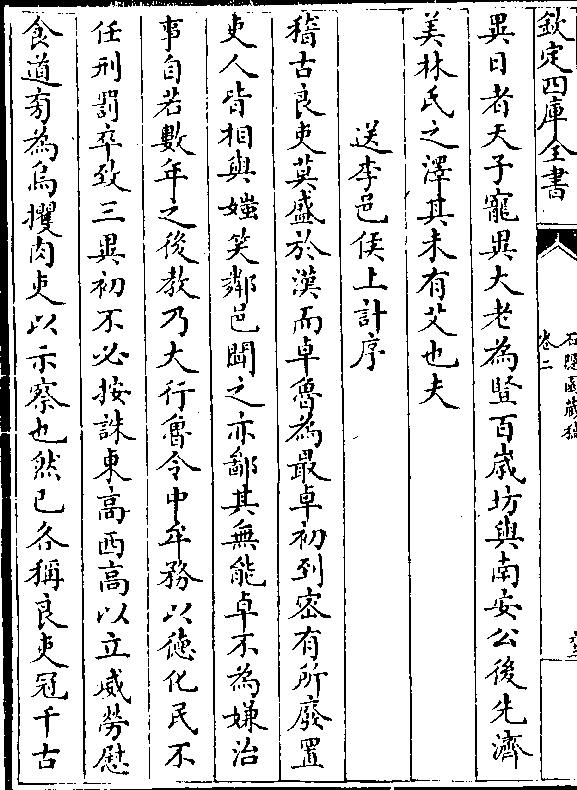 欽定四庫全書
石隱園藏稿
卷二
異日者天子寵異大老為豎百歲坊與南安公後先濟
美林氏之澤其未有艾也夫
送李邑侯上計序
稽古良吏莫盛於漢而卓魯為最卓初到密有所廢置
吏人皆相與嗤笑鄰邑聞之亦鄙其無能卓不為嫌治
事自若數年之後教乃大行魯令中牟務以德化民不
任刑罰卒致三異初不必按誅東高西高以立威勞慰
食道旁為烏攫肉吏以示察也然已各稱良吏冠千古